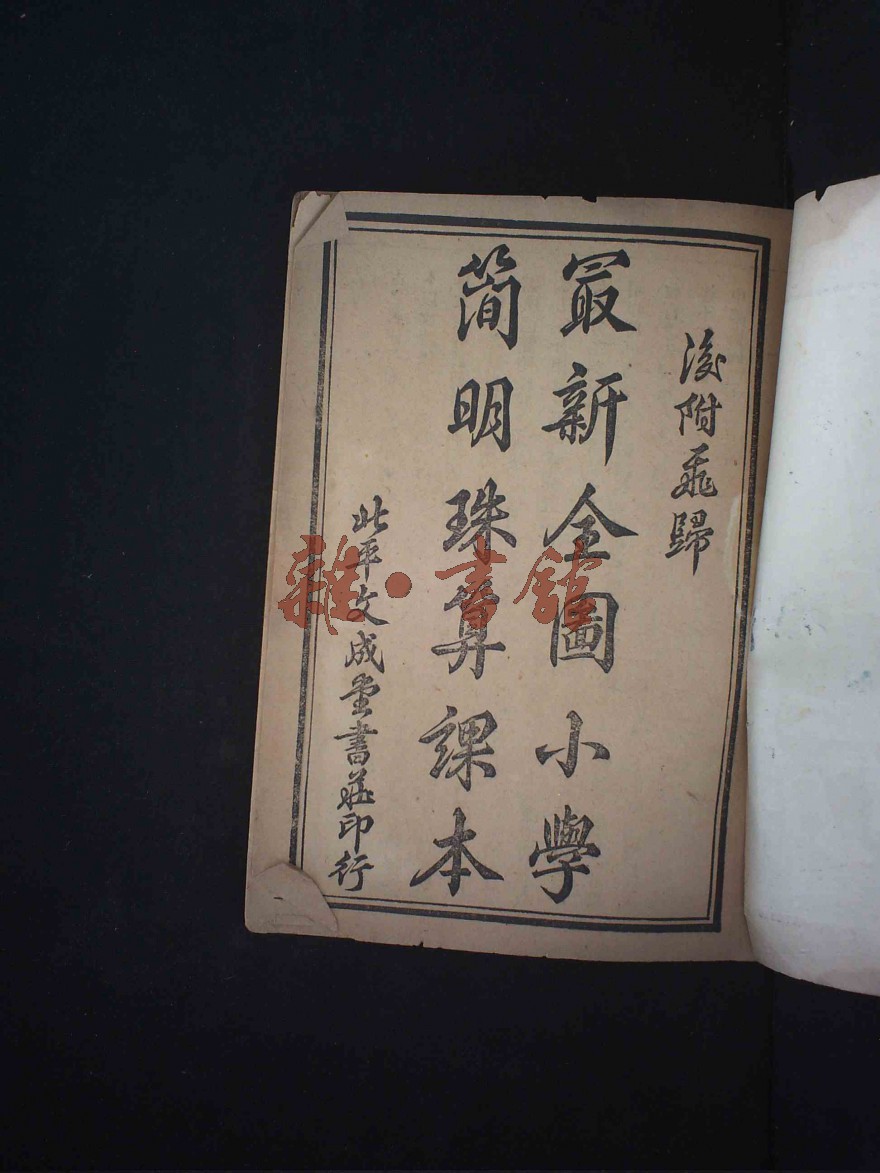 後附飛歸
最新全圖小學
簡明珠算課本
北平文成堂書莊印行
雜·書館